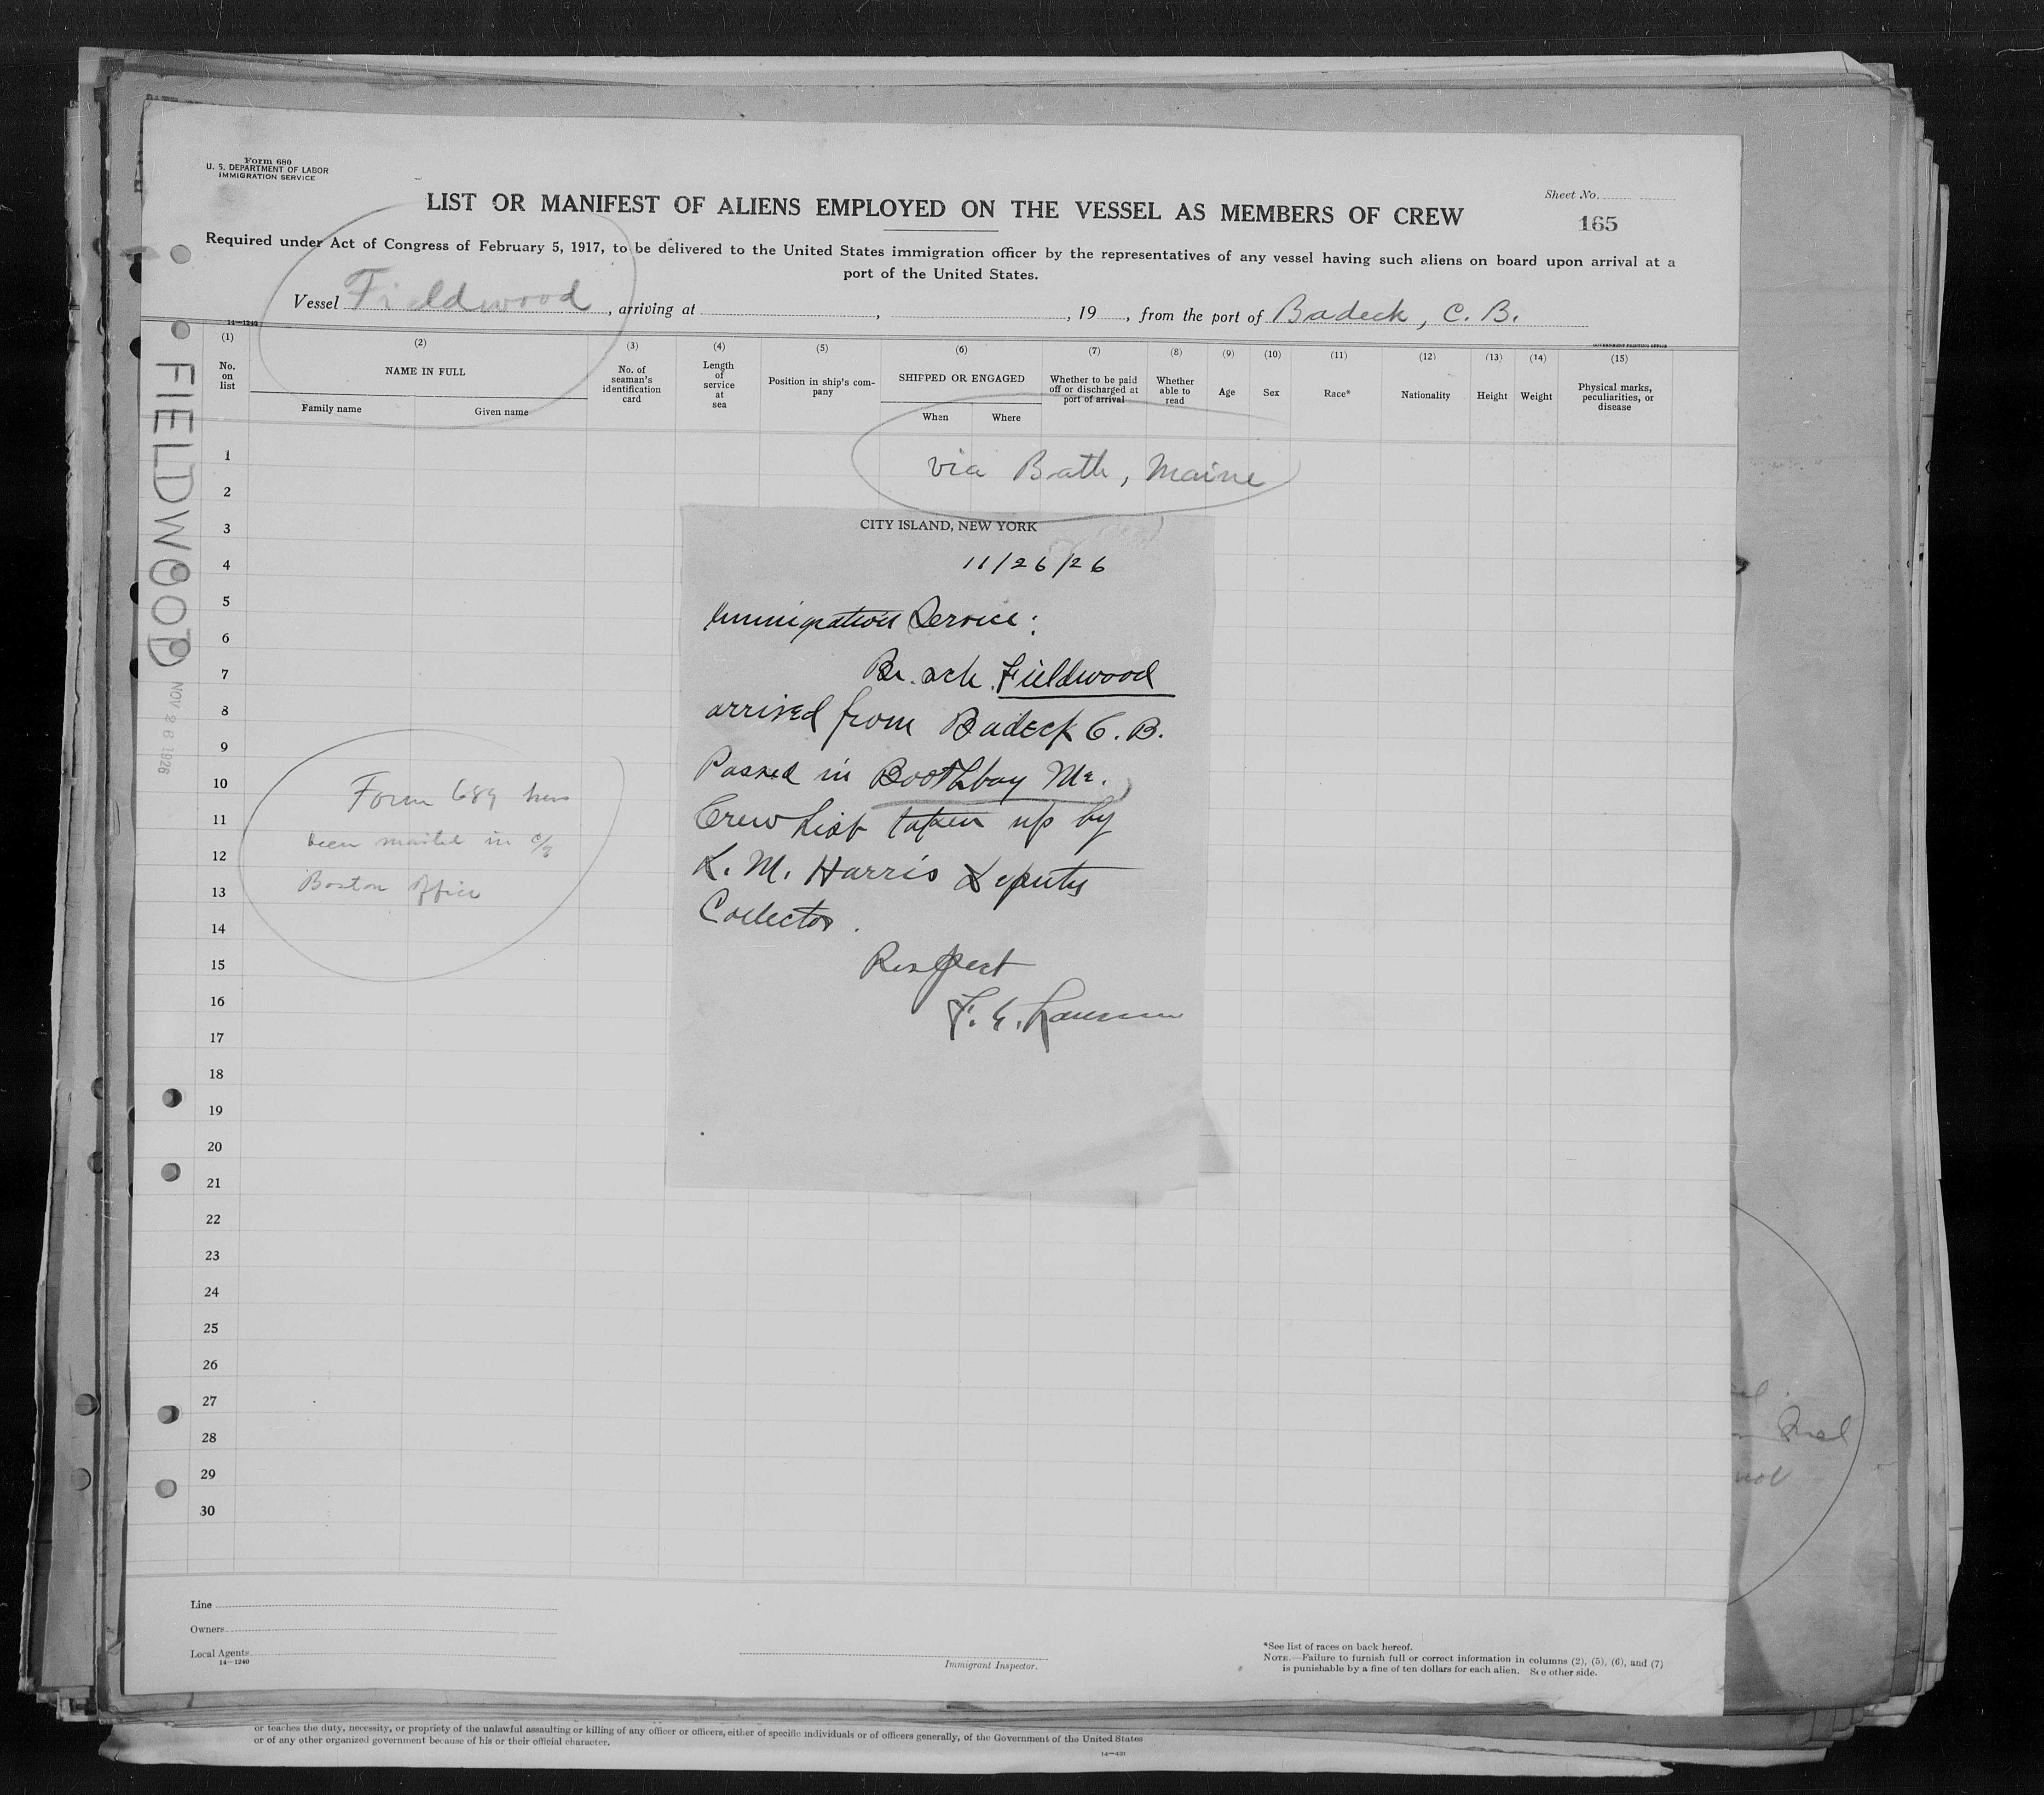 Form 680
U. S. DEPARTMENT OF LABOR
IMMIGRATION SERVICE
LIST OR MANIFEST OF ALIENS EMPLOYED ON THE VESSEL AS MEMBERS OF CREW
Sheet No.
165
Required under Act of Congress of February 5, 1917, to be delivered to the United States immigration officer by the representatives of any vessel having such aliens on board upon arrival at a
port of the United States.
Vessel Fieldwood, arriving at , , 19 , from the port of Badeck, C. B.
14—1240
GOVERNMENT PRINTING OFFICE
(1) (2) (3) (4) (5) (6) (7) (8) (9) (10) (11) (12) (13) (14) (15)
No. on list
NAME IN FULL
Family name
Given name
No. of seaman's identification card
Length of service at sea
Position in ship's company
SHIPPED OR ENGAGED
When
Where
Whether to be paid off or discharged at port of arrival
Whether able to read
Age
Sex
Race*
Nationality
Height
Weight
Physical marks, peculiarities, or disease
FIELDWOOD
NOV 26 1926
via Bath, Maine
CITY ISLAND, NEW YORK
11/26/26
Immigration Service:
Br. sch. Fieldwood
arrived from Badeck C. B.
Passed in Boothbay Me.
Crew List taken up by
K. M. Harris Deputy
Collector.
Respect
Form 689 has
been mailed in c/o
Boston Office
1
2
3
4
5
6
7
8
9
10
11
12
13
14
15
16
17
18
19
20
21
22
23
24
25
26
27
28
29
30
Line
Owners
Local Agents
14—1240
Immigrant Inspector.
*See list of races on back hereof.
NOTE.—Failure to furnish full or correct information in columns (2), (5), (6), and (7)
is punishable by a fine of ten dollars for each alien. See other side.
or teaches the duty, necessity, or propriety of the unlawful assaulting or killing of any officer or officers, either of specific individuals or of officers generally, of the Government of the United States
or of any other organized government because of his or their official character.
14—431